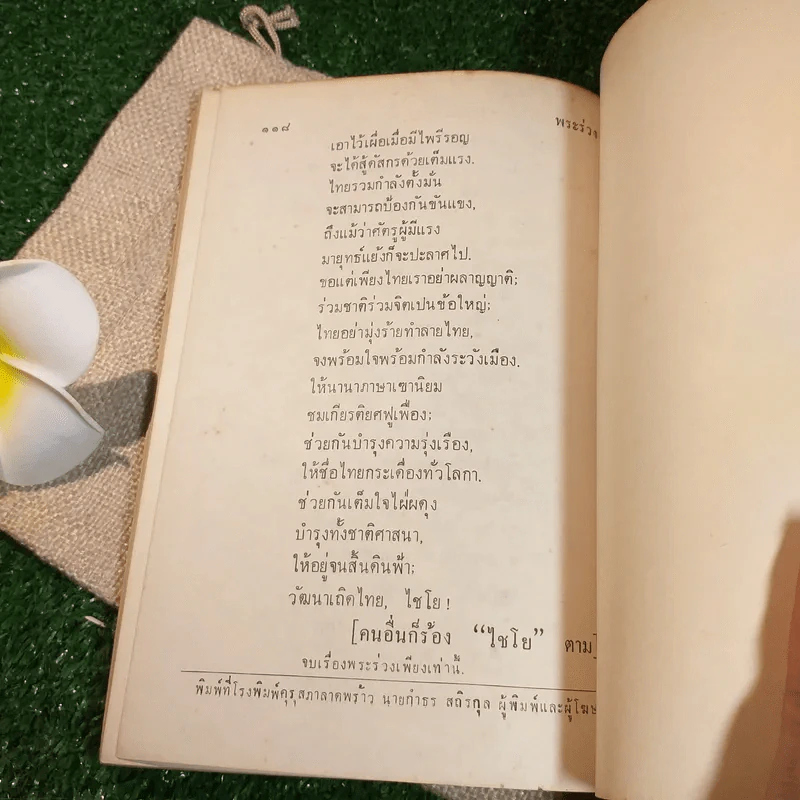 ๑๑๘ พระร่วง
เอาไว้เผื่อเมื่อมีไพรีรอญ
จะได้สู้ดัสกรด้วยเต็มแรง.
ไทยรวมกำลังตั้งมั่น
จะสามารถป้องกันขันแขง,
ถึงแม้ว่าศัตรูผู้มีแรง
มายุทธ์แย้งก็จะปะลาศไป.
ขอแต่เพียงไทยเราอย่าผลาญญาติ;
ร่วมชาติร่วมจิตเปนข้อใหญ่;
ไทยอย่ามุ่งร้ายทำลายไทย,
จงพร้อมใจพร้อมกำลังระวังเมือง.
ให้นานาภาษาเขานิยม
ชมเกียรติยศฟูเฟื่อง;
ช่วยกันบำรุงความรุ่งเรือง,
ให้ชื่อไทยกระเดื่องทั่วโลกา.
ช่วยกันเต็มใจใฝ่ผดุง
บำรุงทั้งชาติศาสนา,
ให้อยู่จนสิ้นดินฟ้า;
วัฒนาเถิดไทย, ไชโย !
[คนอื่นก็ร้อง “ไชโย” ตาม]
จบเรื่องพระร่วงเพียงเท่านี้.
พิมพ์ที่โรงพิมพ์คุรุสภาลาดพร้าว นายกำธร สถิรกุล ผู้พิมพ์และผู้โฆษ